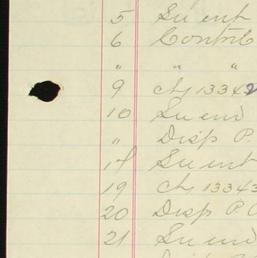 5 Su ent
6 Contrib
" " "
9 Chg 13342
10 Su end
" Disp P.
17 Su ent
19 Chg 13343
20 Disp P C
21 Su end